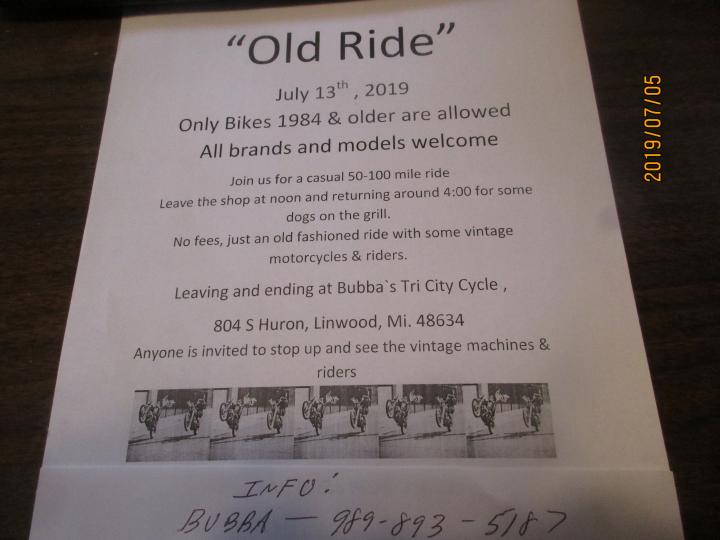 “Old Ride”
July 13th , 2019
Only Bikes 1984 & older are allowed
All brands and models welcome
Join us for a casual 50-100 mile ride
Leave the shop at noon and returning around 4:00 for some
dogs on the grill.
No fees, just an old fashioned ride with some vintage
motorcycles & riders.
Leaving and ending at Bubba`s Tri City Cycle ,
804 S Huron, Linwood, Mi. 48634
Anyone is invited to stop up and see the vintage machines &
riders
INFO:
BUBBA — 989-893-5187
2019/07/05